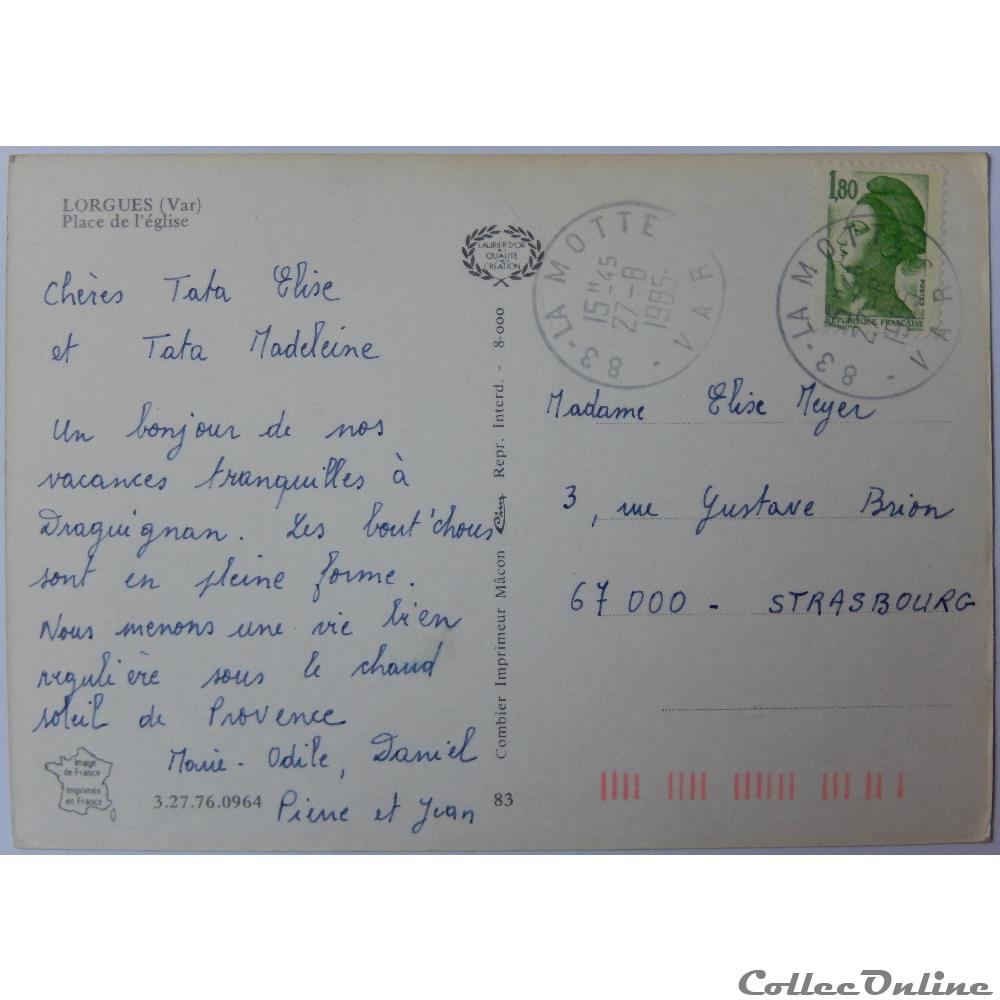 LORGUES (Var)
Place de l'église
Chères Tata Elise
et Tata Madeleine
Un bonjour de nos
vacances tranquilles à
Draguignan. Les bout'chous
sont en pleine forme.
Nous menons une vie bien
regulière sous le chaud
soleil de Provence
Marie-Odile, Daniel
Pierre et Jean
Image
de France
Imprimée
en France
3.27.76.0964
83
LAURIER D'OR
DE LA
QUALITÉ
CRÉATION
Combier Imprimeur Mâcon Cim Repr. Interd. - 8-000
83-LA MOTTE
15H-45
27-8
1985
VAR
1,80
POSTES
RÉPUBLIQUE FRANÇAISE
83-LA MO
VAR
Madame Elise Meyer
3, rue Gustave Brion
67 000 - STRASBOURG
CollecOnline